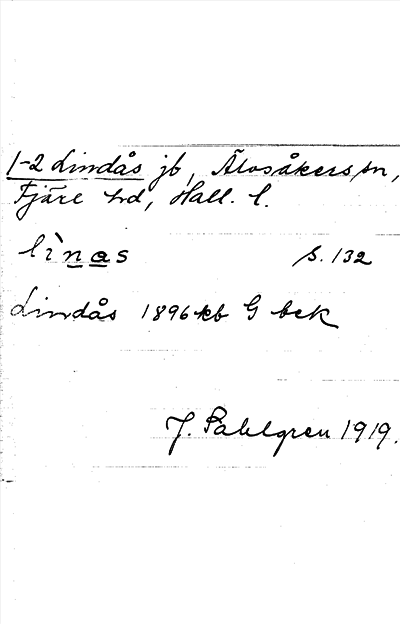 1-2 Lindås jb, Älvsåkers sn,
Fjäre hd, Hall. l.
lì̀nas s. 132
Lindås 1896 kb G bek
J. Sahlgren 1919.